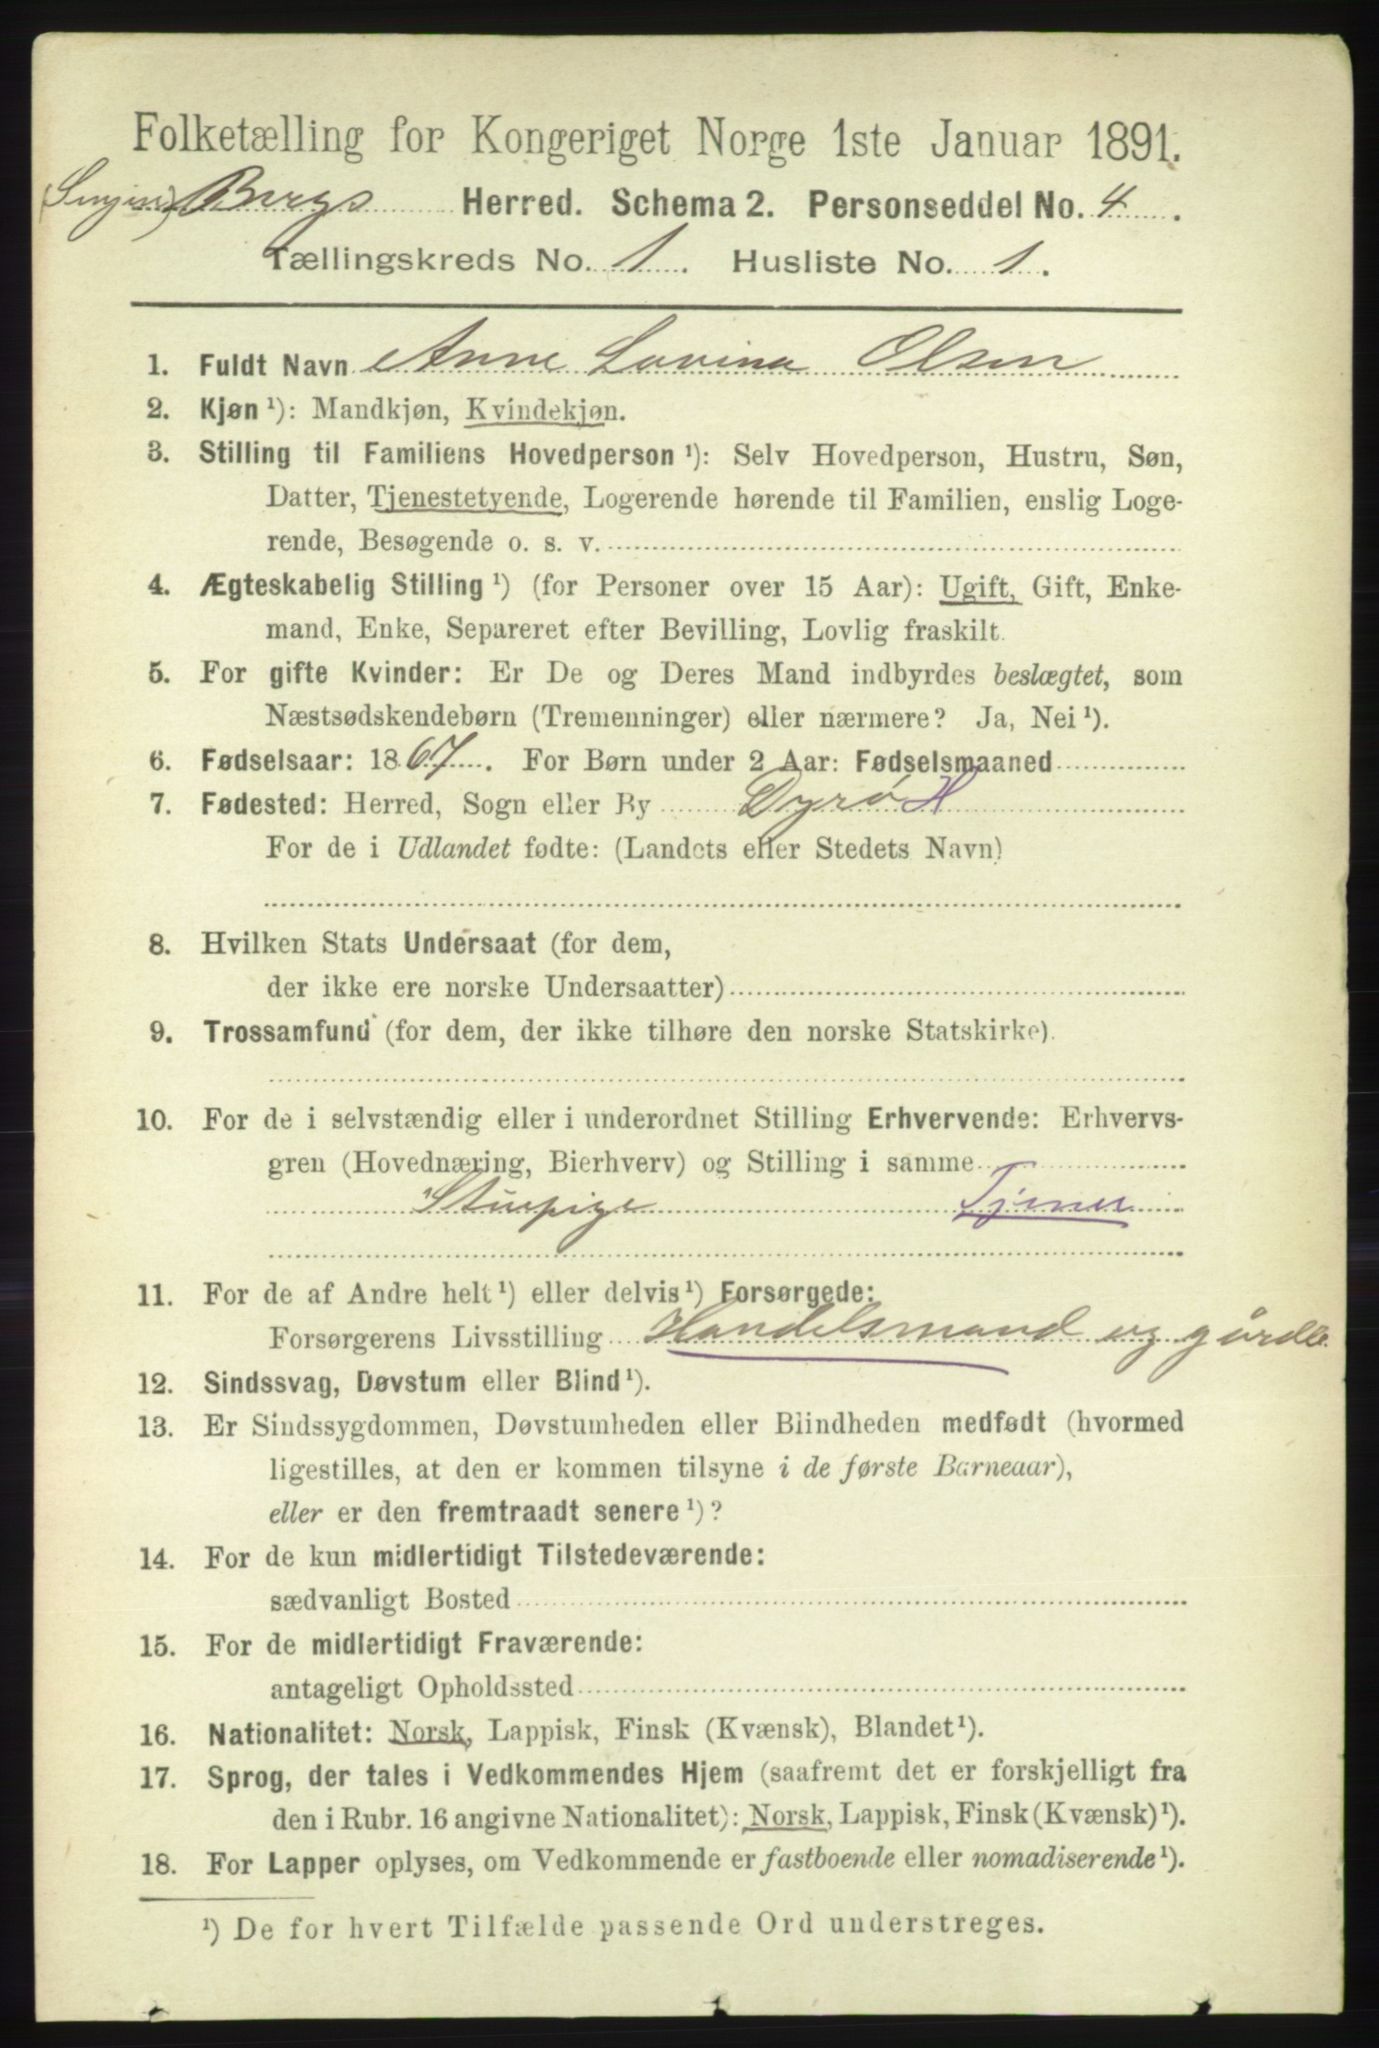 Folketælling for Kongeriget Norge 1ste Januar 1891.
Bergs Herred. Schema 2. Personseddel No. 4.
Tællingskreds No. 1. Husliste No. 1.
1. Fuldt Navn Anne Lovina Olsen
2. Kjøn ¹): Mandkjøn, Kvindekjøn.
3. Stilling til Familiens Hovedperson ¹): Selv Hovedperson, Hustru, Søn,
Datter, Tjenestetyende, Logerende hørende til Familien, enslig Loge-
rende, Besøgende o. s. v.
4. Ægteskabelig Stilling ¹) (for Personer over 15 Aar): Ugift, Gift, Enke-
mand, Enke, Separeret efter Bevilling, Lovlig fraskilt.
5. For gifte Kvinder: Er De og Deres Mand indbyrdes beslægtet, som
Næstsødskendebørn (Tremenninger) eller nærmere? Ja, Nei ¹).
6. Fødselsaar: 1867. For Børn under 2 Aar: Fødselsmaaned
7. Fødested: Herred, Sogn eller By Dyrø H
For de i Udlandet fødte: (Landets eller Stedets Navn)
8. Hvilken Stats Undersaat (for dem,
der ikke ere norske Undersaatter)
9. Trossamfund (for dem, der ikke tilhøre den norske Statskirke).
10. For de i selvstændig eller i underordnet Stilling Erhvervende: Erhvervs-
gren (Hovednæring, Bierhverv) og Stilling i samme
Stuepige Tjener
11. For de af Andre helt ¹) eller delvis ¹) Forsørgede:
Forsørgerens Livsstilling Handelsmand og gårdb.
12. Sindssvag, Døvstum eller Blind ¹).
13. Er Sindssygdommen, Døvstumheden eller Blindheden medfødt (hvormed
ligestilles, at den er kommen tilsyne i de første Barneaar),
eller er den fremtraadt senere ¹)?
14. For de kun midlertidigt Tilstedeværende:
sædvanligt Bosted
15. For de midlertidigt Fraværende:
antageligt Opholdssted
16. Nationalitet: Norsk, Lappisk, Finsk (Kvænsk), Blandet ¹).
17. Sprog, der tales i Vedkommendes Hjem (saafremt det er forskjelligt fra
den i Rubr. 16 angivne Nationalitet): Norsk, Lappisk, Finsk (Kvænsk) ¹).
18. For Lapper oplyses, om Vedkommende er fastboende eller nomadiserende ¹).
¹) De for hvert Tilfælde passende Ord understreges.